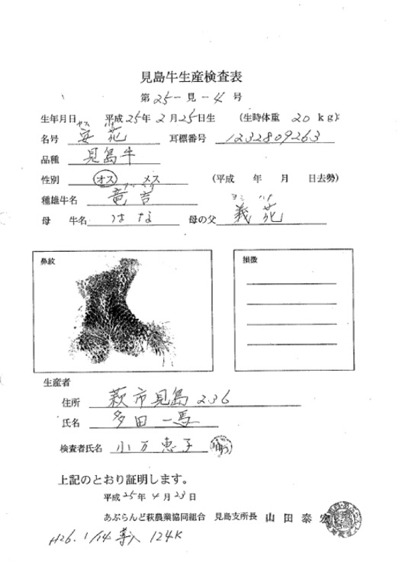 見島牛生産検査表
第 25-見-4 号
生年月日 平成 25年 2月 25日生 (生時体重 20 kg)
名号 安花 耳標番号 1232809263
品種 見島牛
性別 オス メス (平成 年 月 日去勢)
種雄牛名 竜吉
母 牛名 はな 母の父 義花
鼻紋 損徴
生産者
住所 萩市見島236
氏名 多田一馬
検査者氏名 小万恵子
上記のとおり証明します。
平成 25年 4月 23日
あぶらんど萩農業協同組合 見島支所長 山田泰宏
H26.1/14導入 124K